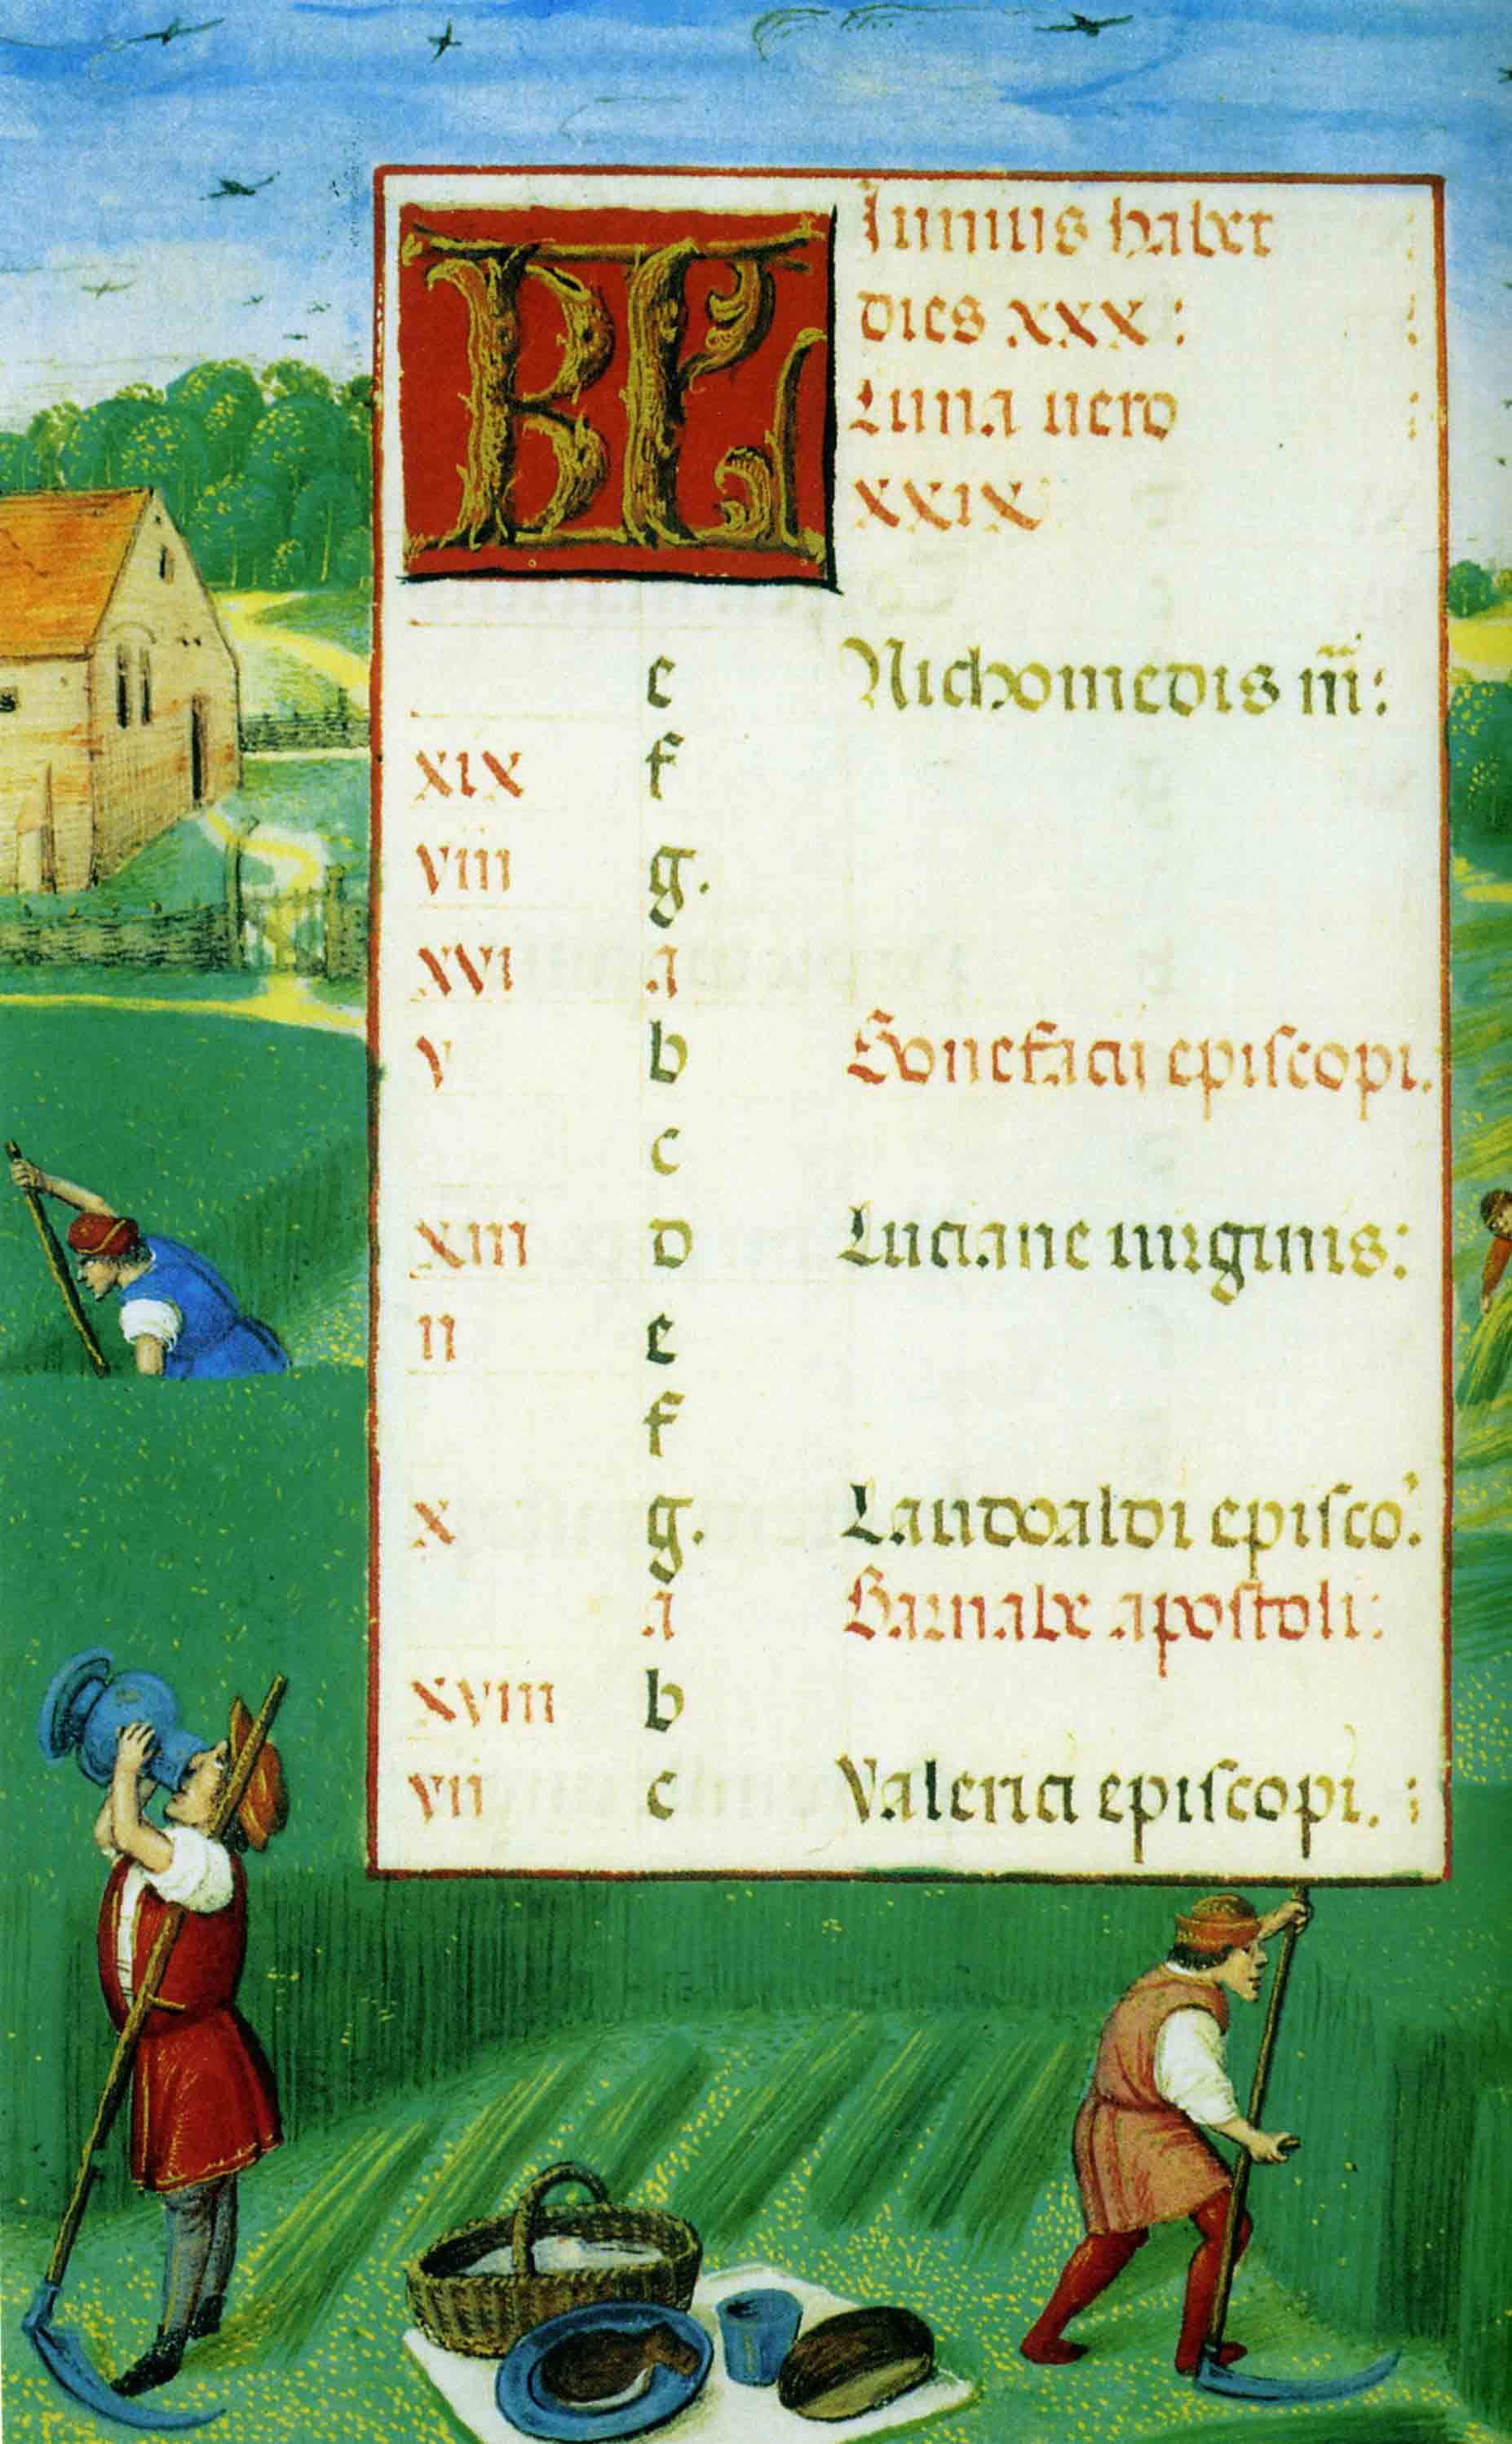 KL Iunius habet
dies xxx :
Luna uero
xxix
e Nichomedis m̄:
xix f
viii g.
xvi a
v b Bonefacii episcopi.
c
xiii d Luciane uirginis:
ii e
f
x g. Landoaldi episco:
a Barnabe apostoli:
xviii b
vii c Valerici episcopi. :